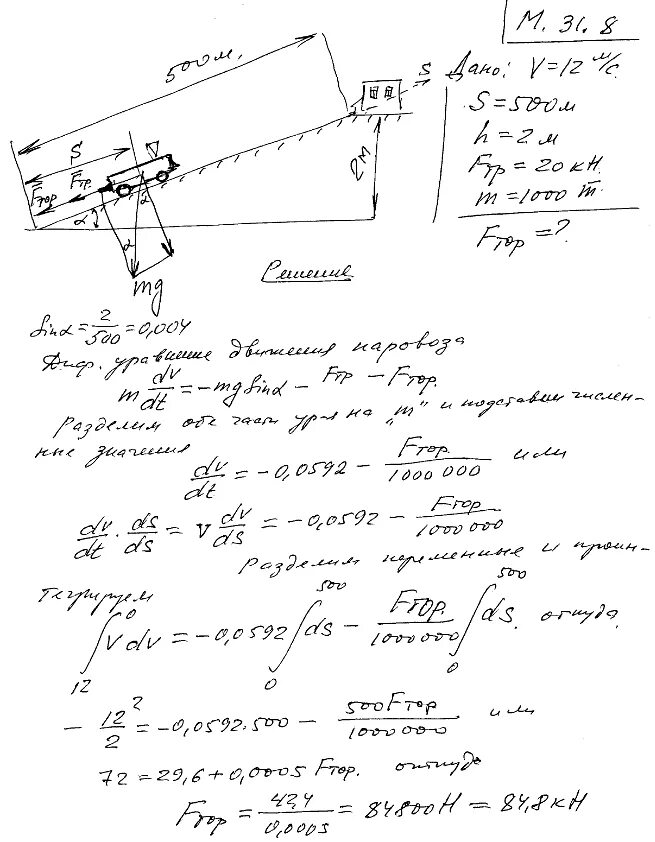 М. 31.8
500м.
S Дано: V=12 м/с.
S=500м
h = 2 м
Fтр = 20 кН.
m = 1000 т.
Fтор = ?
S
V
2м
Fтор Fтр.
α
α
α
mg
Решение
Sinα = 2/500 = 0,004
Диф. уравнение движения паровоза
m dv/dt = -mg Sinα - Fтр - Fтор.
Разделим обе части ур-я на „m" и подставим числен-
ные значения
dv/dt = -0,0592 - Fтор./1000 000 или
dv/dt · ds/ds = V dv/ds = -0,0592 - Fтор/1000 000
Разделим переменные и проин-
тегрируем
∫₁₂⁰ V dv = -0,0592 ∫₀⁵⁰⁰ ds - Fтор./1000 000 ∫₀⁵⁰⁰ ds. откуда.
- 12²/2 = -0,0592·500 - 500Fтор/1000 000 или
72 = 29,6 + 0,0005 Fтор. откуда
Fтор = 42,4/0,0005 = 84800Н = 84,8кН